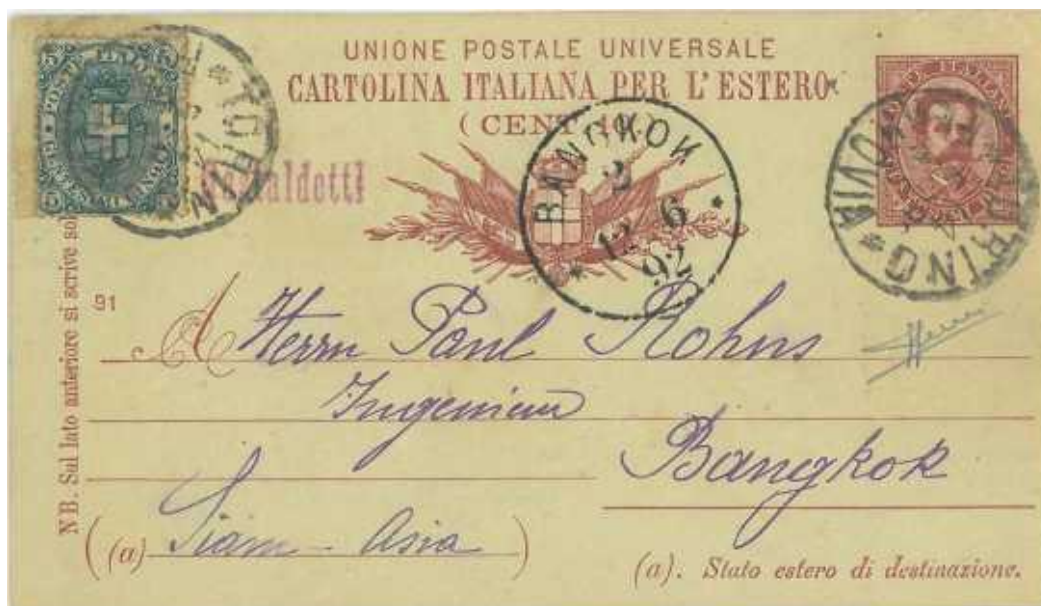 UNIONE POSTALE UNIVERSALE
CARTOLINA ITALIANA PER L'ESTERO
(CENT 10)
POSTE ITALIANE
TORINO
FERROVIA
TORINO
BANGKOK
2
12 6
92
NB. Sul lato anteriore si scrive
91
A Herrn Paul Rohns
Ingenieur
Bangkok
(a) Siam - Asia
(a). Stato estero di destinazione.